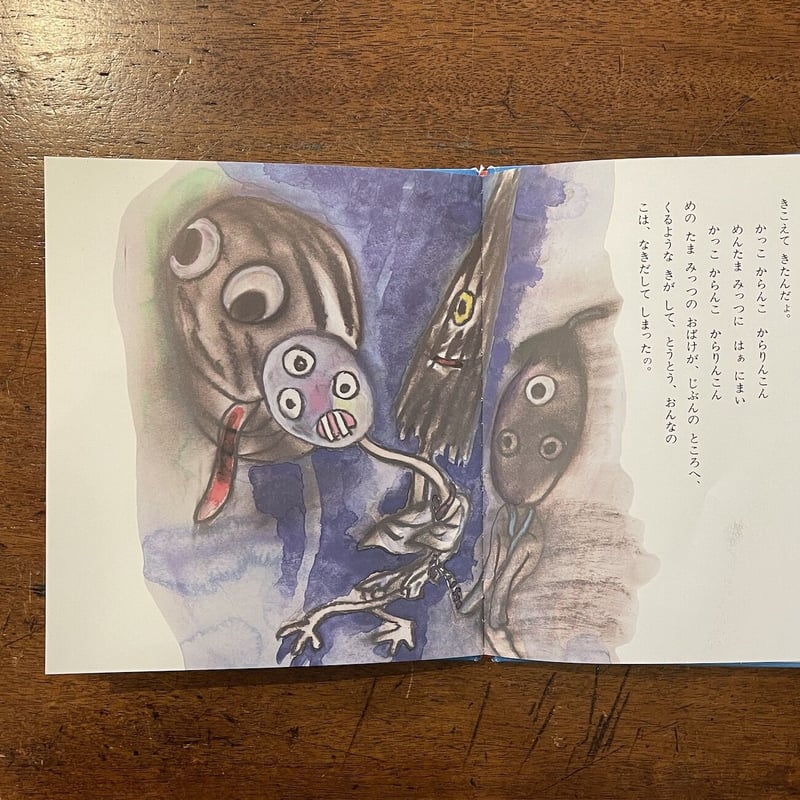 きこえて きたんだよ。
かっこ からんこ からりんこん
めんたま みっつに はぁ にまい
かっこ からんこ からりんこん
めの たま みっつの おばけが、じぶんの ところへ、
くるような きが して、とうとう、おんなの
こは、なきだして しまったの。